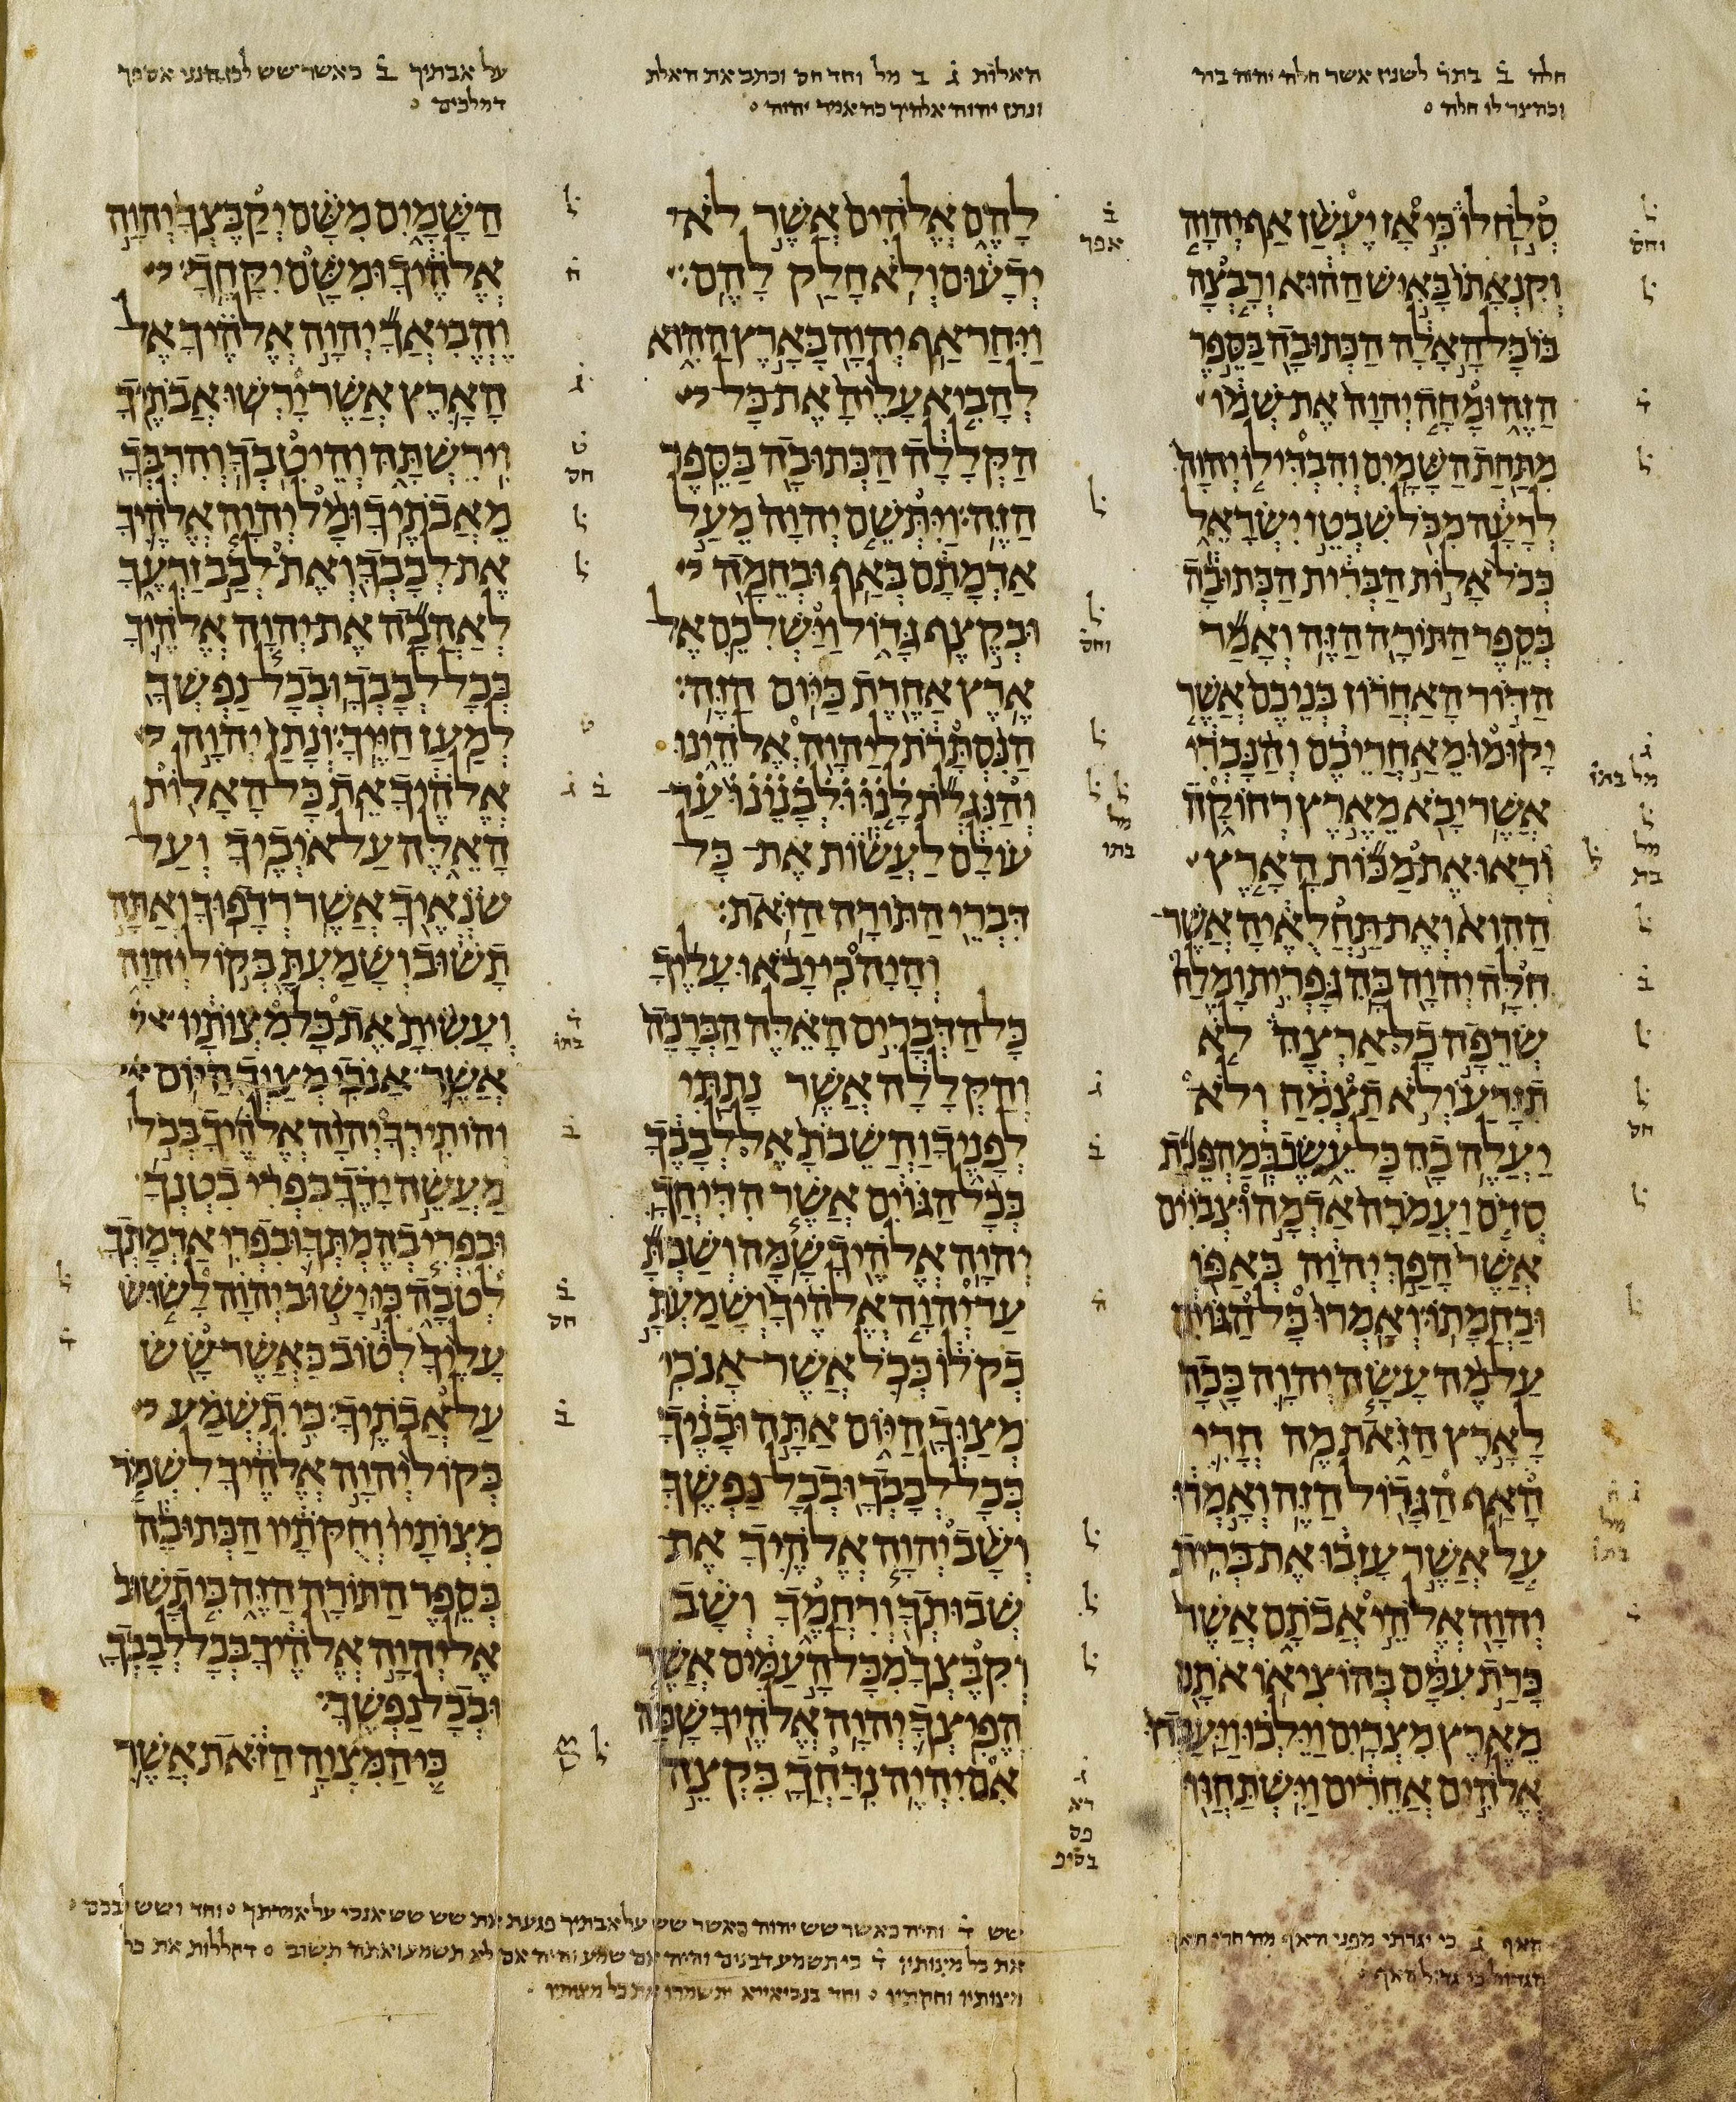 חלה ב בתר לשנין אשר חלה יהוה בה
וכה צר לו חלה
האלות ג ב מל וחד חס וכתב את האלת
ונתן יהוה אלהיך כה אמר יהוה
על אבתיך ב כאשר שש לכן הנני אספך
דמלכים
סלח לו כי אז יעשן אף יהוה
וקנאתו באיש ההוא ורבצה
בו כל האלה הכתובה בספר
הזה ומחה יהוה את שמו
מתחת השמים והבדילו יהוה
לרעה מכל שבטי ישראל
ככל אלות הברית הכתובה
בספר התורה הזה ואמר
הדור האחרון בניכם אשר
יקומו מאחריכם והנכרי
אשר יבא מארץ רחוקה
וראו את מכות הארץ
ההוא ואת תחלאיה אשר
חלה יהוה בה גפרית ומלח
שרפה כל ארצה לא
תזרע ולא תצמח ולא
יעלה בה כל עשב כמהפכת
סדם ועמרה אדמה וצביים
אשר הפך יהוה באפו
ובחמתו ואמרו כל הגוים
על מה עשה יהוה ככה
לארץ הזאת מה חרי
האף הגדול הזה ואמרו
על אשר עזבו את ברית
יהוה אלהי אבתם אשר
כרת עמם בהוציאו אתם
מארץ מצרים וילכו ויעבדו
אלהים אחרים וישתחוו
להם אלהים אשר לא
ידעום ולא חלק להם
ויחר אף יהוה בארץ ההוא
להביא עליה את כל
הקללה הכתובה בספר
הזה ויתשם יהוה מעל
אדמתם באף ובחמה
ובקצף גדול וישלכם אל
ארץ אחרת כיום הזה
הנסתרת ליהוה אלהינו
והנגלת לנו ולבנינו עד
עולם לעשות את כל
דברי התורה הזאת
והיה כי יבאו עליך
כל הדברים האלה הברכה
והקללה אשר נתתי
לפניך והשבת אל לבבך
בכל הגוים אשר הדיחך
יהוה אלהיך שמה ושבת
עד יהוה אלהיך ושמעת
בקלו ככל אשר אנכי
מצוך היום אתה ובניך
בכל לבבך ובכל נפשך
ושב יהוה אלהיך את
שבותך ורחמך ושב
וקבצך מכל העמים אשר
הפיצך יהוה אלהיך שמה
אם יהיה נדחך בקצה
השמים משם יקבצך יהוה
אלהיך ומשם יקחך
והביאך יהוה אלהיך אל
הארץ אשר ירשו אבתיך
וירשתה והיטבך והרבך
מאבתיך ומל יהוה אלהיך
את לבבך ואת לבב זרעך
לאהבה את יהוה אלהיך
בכל לבבך ובכל נפשך
למען חייך ונתן יהוה
אלהיך את כל האלות
האלה על איביך ועל
שנאיך אשר רדפוך ואתה
תשוב ושמעת בקול יהוה
ועשית את כל מצותיו
אשר אנכי מצוך היום
והותירך יהוה אלהיך בכל
מעשה ידך בפרי בטנך
ובפרי בהמתך ובפרי אדמתך
לטבה כי ישוב יהוה לשוש
עליך לטוב כאשר שש
על אבתיך כי תשמע
בקול יהוה אלהיך לשמר
מצותיו וחקתיו הכתובה
בספר התורה הזה כי תשוב
אל יהוה אלהיך בכל לבבך
ובכל נפשך
כי המצוה הזאת אשר
האף ג כי יגרתי מפני האף מה חרי האף
הגדול כי גדול האף
שש ד והיה כאשר שש יהוה כאשר שש על אבתיך פגעת את שש שש אנכי על אמרתך וחד ושש לבכם
את כל מצותיו ד כי תשמע דבנים והיה אם שמע והיה אם לא תשמע ואתה תשוב דקללות את כל
מצותיו וחקתיו וחד בנביאייא ישמרו את כל מצותיו